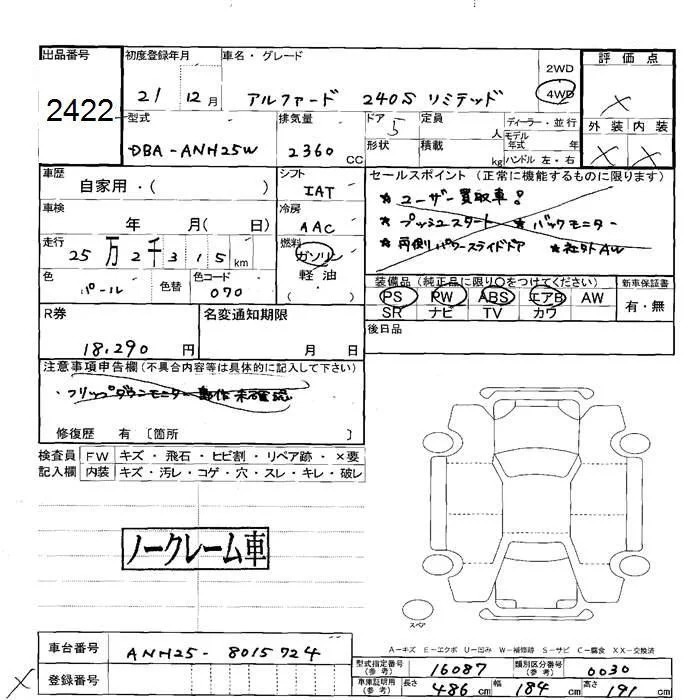 出品番号 初度登録年月 車名・グレード 評価点
2422 21 12月 アルファード 240S リミテッド 2WD 4WD X
型式 排気量 ドア 定員 ディーラー・並行 外装 内装
DBA-ANH25W 2360 CC 5 人 モデル年式 年 X X
形状 積載 kg ハンドル 左・右
車歴 シフト セールスポイント (正常に機能するものに限ります)
自家用・( ) IAT ★ユーザー買取車!
車検 冷房 ★プッシュスタート ★バックモニター
年 月( 日) AAC ★両側パワースライドドア ★社外AW
走行 燃料
25万2千315km ガソリン
色 色替 色コード 軽油
パール 070 ( )
装備品 (純正品に限り○をつけてください) 新車保証書
PS PW ABS エアB AW 有・無
SR ナビ TV カワ
R券 名変通知期限 後日品
18,290 円 月 日
注意事項申告欄(不具合内容等は具体的に記入して下さい)
・フリップダウンモニター動作未確認
修復歴 有 〔箇所 〕
検査員 FW キズ・飛石・ヒビ割・リペア跡・×要
記入欄 内装 キズ・汚レ・コゲ・穴・スレ・キレ・破レ
ノークレーム車
スペア
A-キズ E-エクボ U-凹み W-補修跡 S-サビ C-腐食 XX-交換済
車台番号 ANH25-8015724
登録番号
X
型式指定番号(参考) 16087 類別区分番号(参考) 0030
車庫証明用(参考) 長さ 486 cm 幅 184 cm 高さ 191 cm